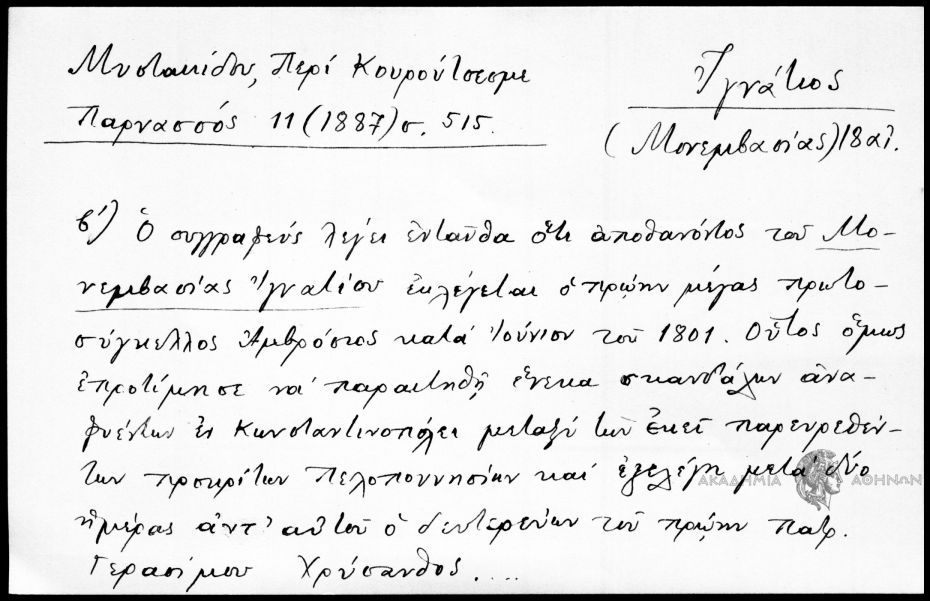 Μυστακίδου, Περί Κουρούτσεσμε
Παρνασσός 11 (1887) σ. 515.
Ἰγνάτιος
(Μονεμβασίας) 18 αἰ.
β΄) Ὁ συγγραφεύς λέγει ἐνταῦθα ὅτι ἀποθανόντος τοῦ Μο-
νεμβασίας Ἰγνατίου ἐκλέγεται ὁ πρώην μέγας πρωτο-
σύγκελλος Ἀμβρόσιος κατά Ἰούνιον τοῦ 1801. Οὗτος ὅμως
ἐπροτίμησε νά παραιτηθῇ ἕνεκα σκανδάλων ἀνα-
φυέντων ἐν Κωνσταντινοπόλει μεταξύ τῶν ἐκεῖ παρευρεθέν-
των προκρίτων Πελοποννησίων καί ἐξελέγη μετά δύο
ἡμέρας ἀντ' αὐτοῦ ὁ δευτερεύων τοῦ πρώην πατρ.
Γερασίμου Χρύσανθος....
ΑΚΑΔΗΜΙΑ ΑΘΗΝΩΝ